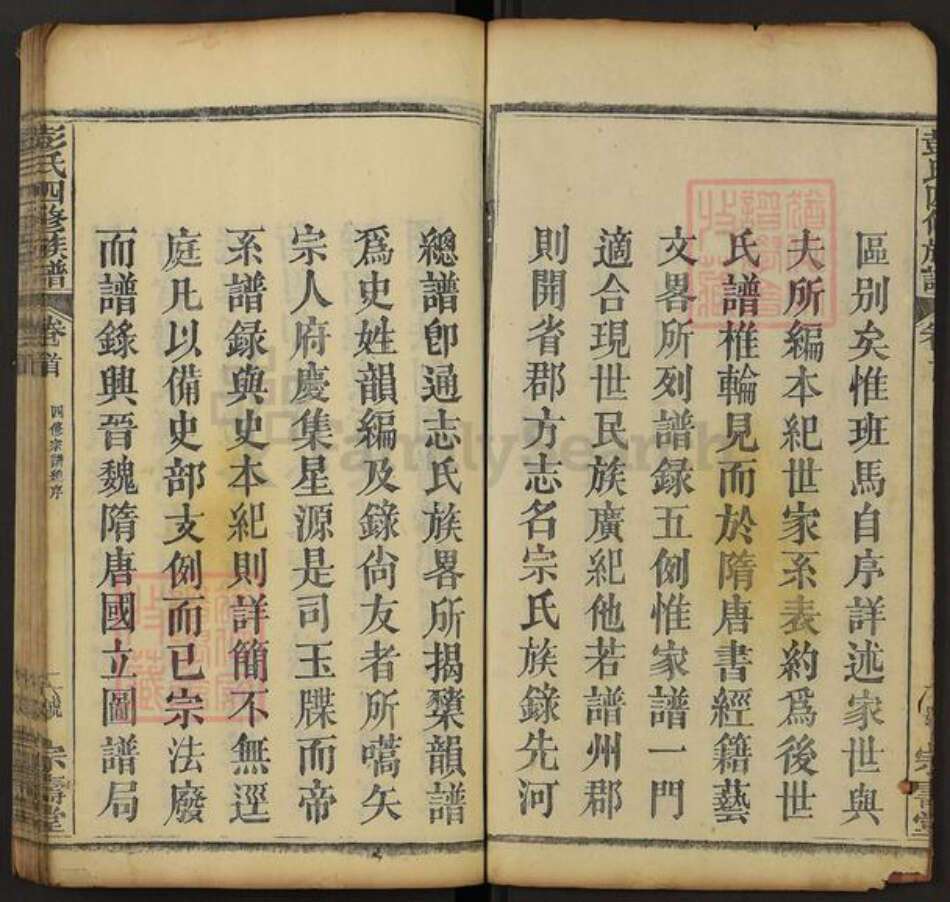 區别矣惟班馬自序詳述家世與
夫所編本紀世家系表約爲後世
氏譜椎輪見而於隋唐書經籍藝
文畧所列譜録五例惟家譜一門
適合現世民族廣紀他若譜州郡
則開省郡方志名宗氏族錄先河
總譜卽通志氏族畧所揭櫫韻譜
爲史姓韻編及錄尙友者所嚆矢
宗人府慶集星源是司玉牒而帝
系譜録與史本紀則詳簡不無逕
庭凡以備史部支例而已宗法廢
而譜錄興晉魏隋唐國立圖譜局
彭氏四修族譜 卷首 四修宗譜總序 宗壽堂
FamilySearch